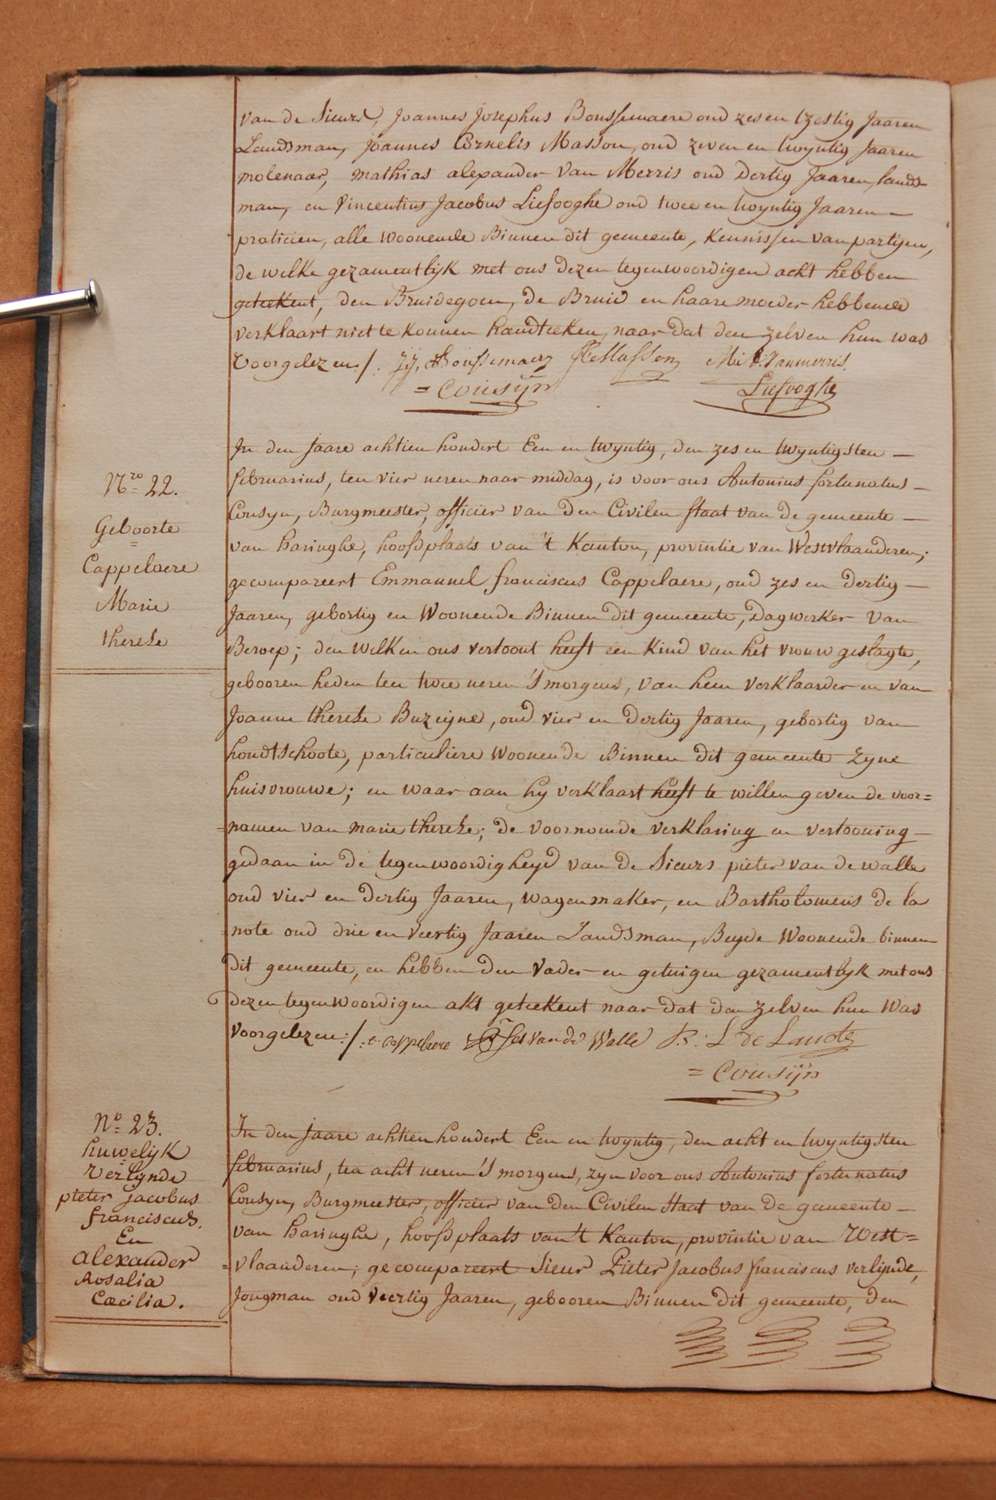 van de Sieurs, Joannes Josephus Boussemaere oud zes en tzestig Jaaren
Landsman, Joannes Cornelis Masson, oud zeven en twyntig Jaaren
molenaar, Mathias alexander van Merris oud dertig Jaaren, lands-
man, en Vincentius Jacobus Liefooghe oud twee en twyntig Jaaren
praticien, alle Woonende Binnen dit gemeente, kennissen van partyen,
de welke gezamentlyk met ons dezen tegenwoordigen ackt hebben
geteekent, den Bruidegom, de Bruid en haare moeder hebbende
verklaart niet te konnen handteeken, naar dat den zelven hun was
Voorgelezen /. J: J: Boussemaere J C Masson M: A: Vanmerris
= Cousÿn Liefooghe
In den Jaare achtien hondert Een en twyntig, den zes en twyntigsten
Nro 22.
februarius, ten vier ueren naar middag, is voor ons Antonius fortunatus
Cousyn, Burgmeester, officier van den Civilen staat van de gemeente
Geboorte
van haringhe, hoofsplaats van 't Kanton, provintie van Westvlaanderen;
Cappelaere
gecompareert Emmanuel franciscus Cappelaere, oud zes en dertig
Marie
Jaaren, gebortig en Woonende Binnen dit gemeente, Dagwerker van
therese
Beroep; den welken ons vertoont heeft een kind van het vrouw geslagte,
gebooren heden ten twee ueren 's morgens, van hem verklaarder en van
Joanne therese Buzeyne, oud vier en dertig Jaaren, gebortig van
hondtschoote, particuliere woonende Binnen dit gemeente zyne
huisvrouwe; en waar aan hy verklaart heeft te willen geven de voor=
=namen van marie therese; de voornoemde verklaring en vertooning
gedaan in de tegenwoordigheyd van de Sieurs pieter van de walle
oud vier en dertig Jaaren, wagenmaker, en Bartholomeus de la
note oud drie en veertig Jaaren Landsman, Beyde Woonende binnen
dit gemeente, en hebben den Vader en getuigen gezamentlyk met ons
dezen tegenwoordigen akt geteekent naar dat den zelven hun was
voorgelezen:/. e cappelaere van de Walle B: L de Lanote
= Cousÿn
No 23.
huwelyk
Verlynde
pieter Jacobus
franciscus.
En
alexander
Rosalia
Cæcilia.
In den Jaare achtien hondert Een en twyntig, den acht en twyntigsten
februarius, ten acht ueren 's morgens, zyn voor ons Antonius fortunatus
Cousyn, Burgmeester, officier van den Civilen staat van de gemeente
van haringhe, hoofsplaats van 't Kanton, provintie van West=
=vlaanderen; gecompareert Sieur Pieter Jacobus franciscus verlynde,
Jongman oud veertig Jaaren, gebooren Binnen dit gemeente, den